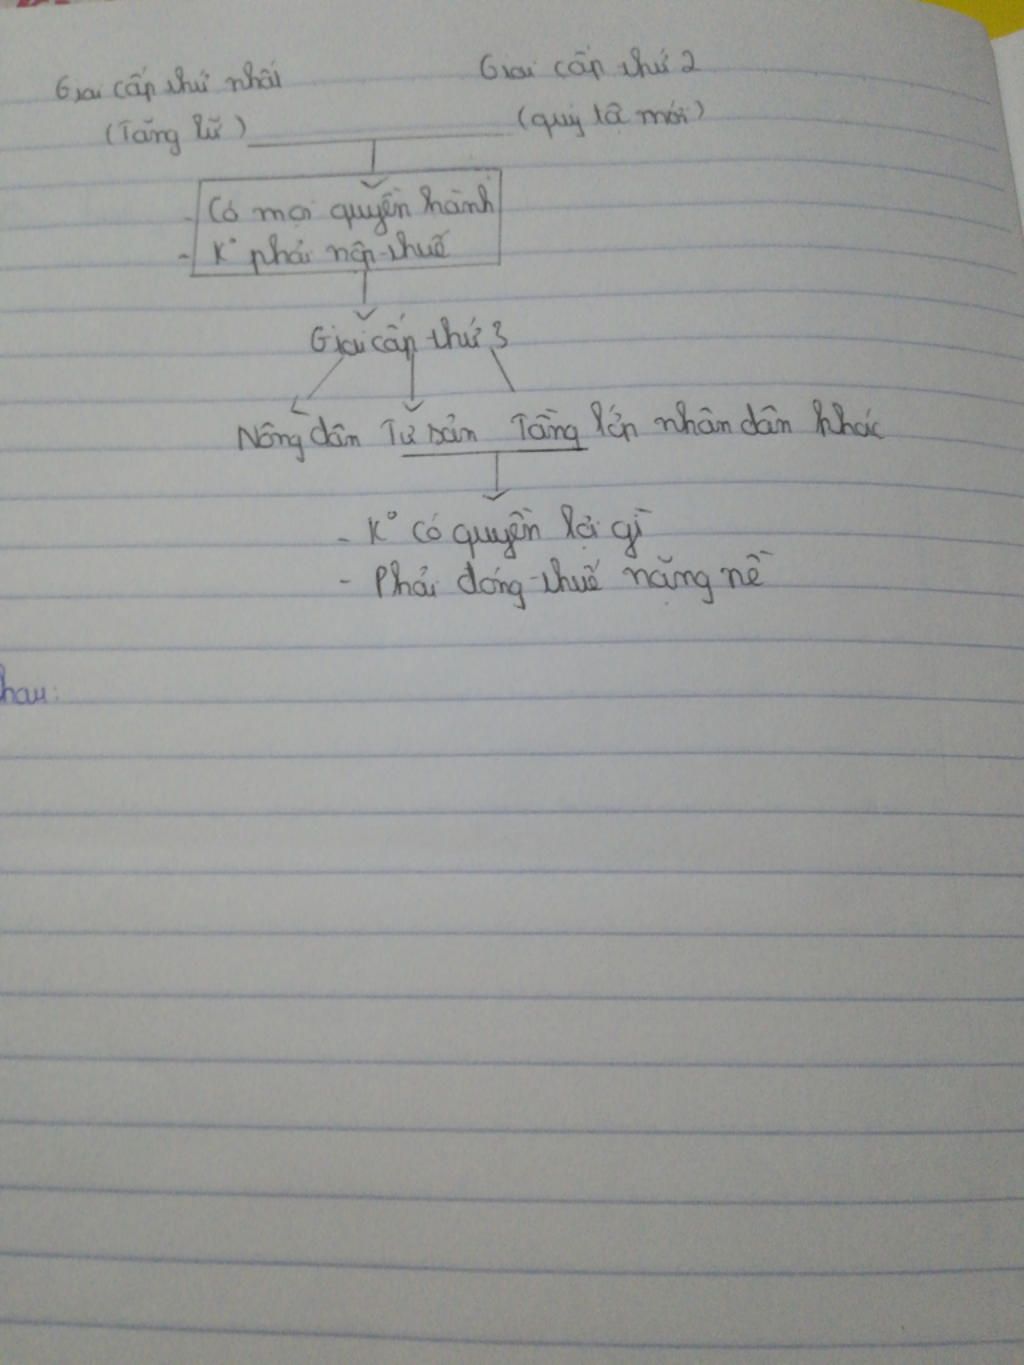 Giai cấp thứ nhất Giai cấp thứ 2
(Tăng lữ) (quý tộ mới)
- Có mọi quyền hành
- K° phải nộp thuế
Giai cấp thứ 3
Nông dân Tư sản Tầng lớp nhân dân khác
- K° có quyền lợi gì
- Phải đóng thuế nặng nề
hau: